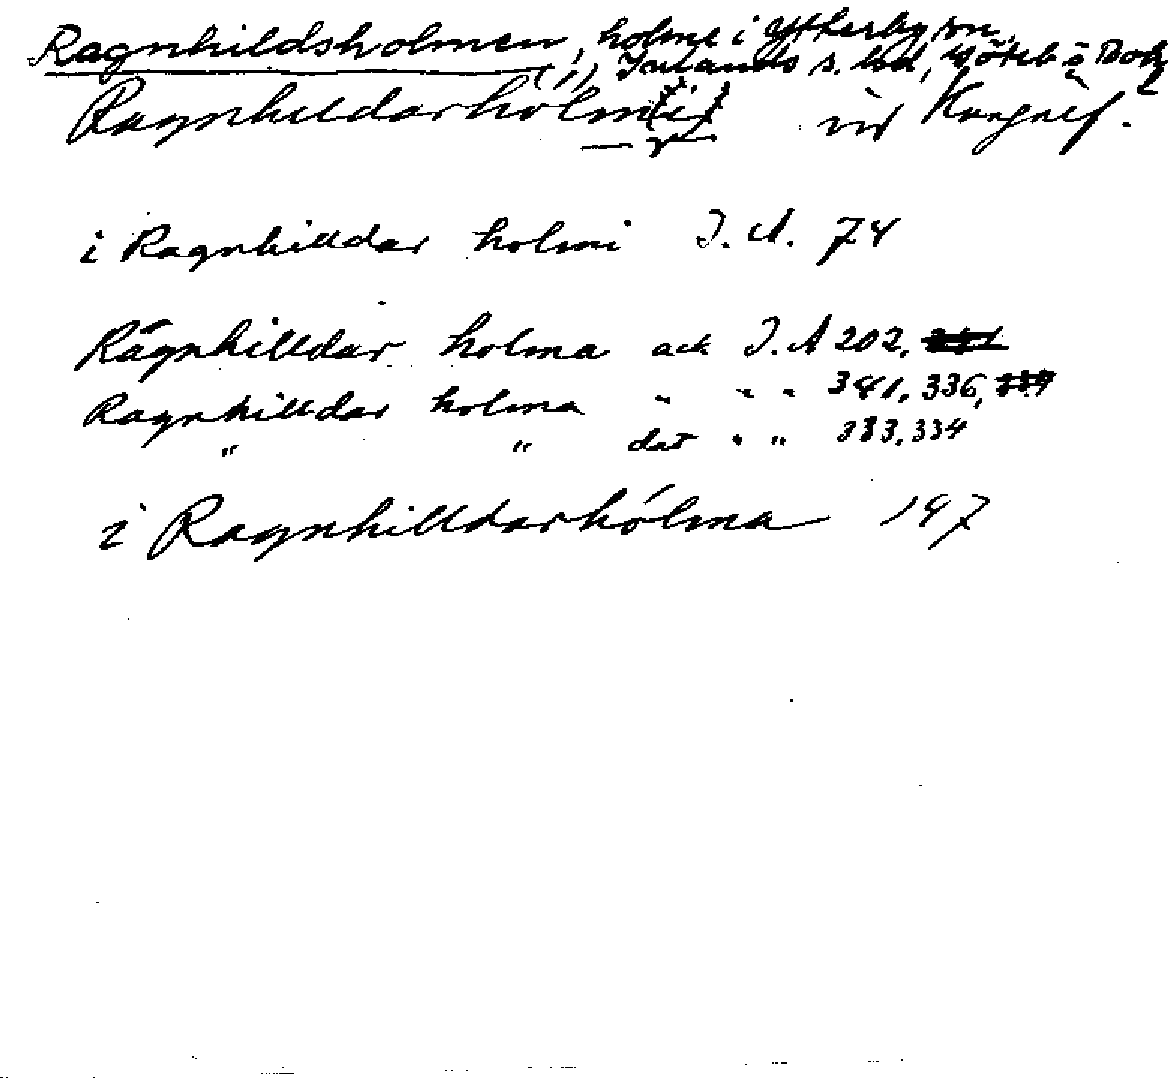 Ragnhildsholmen, holme i Ytterby sn,
Inlands s. hd, Göteb o Boh
Ragnhildarholm(i) vid Kungälf.
i Ragnhilldar holmi I. A. 74
Rägnhilldar holma ack I. A 202,
Ragnhilldar holma " " " 341, 336,
" " dat " " 333, 334
i Ragnhilldarhólma 197